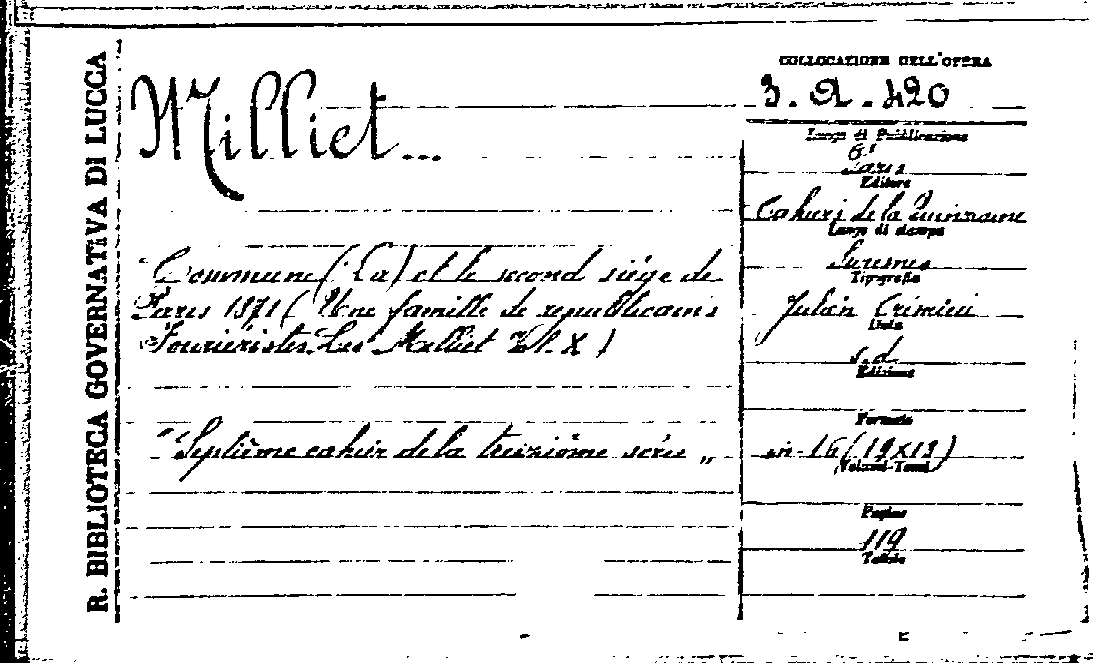 R. BIBLIOTECA GOVERNATIVA DI LUCCA
Milliet...
Commune (La) et le second siége de
Paris 1871 ( Une famille de republicains
Fouriéristes. Les Milliet Vol. X )
"Septième cahier de la treizième série „
COLLOCAZIONE DELL'OPERA
3. A. 420
Luogo di Pubblicazione
Paris
Editore
Cahiers de la Quinzaine
Luogo di stampa
Suresnes
Tipografia
Julien Crémieu
Data
s.d
Edizione
Formato
in-16 (19X13)
Volumi-Tomi
Pagine
119
Tavole